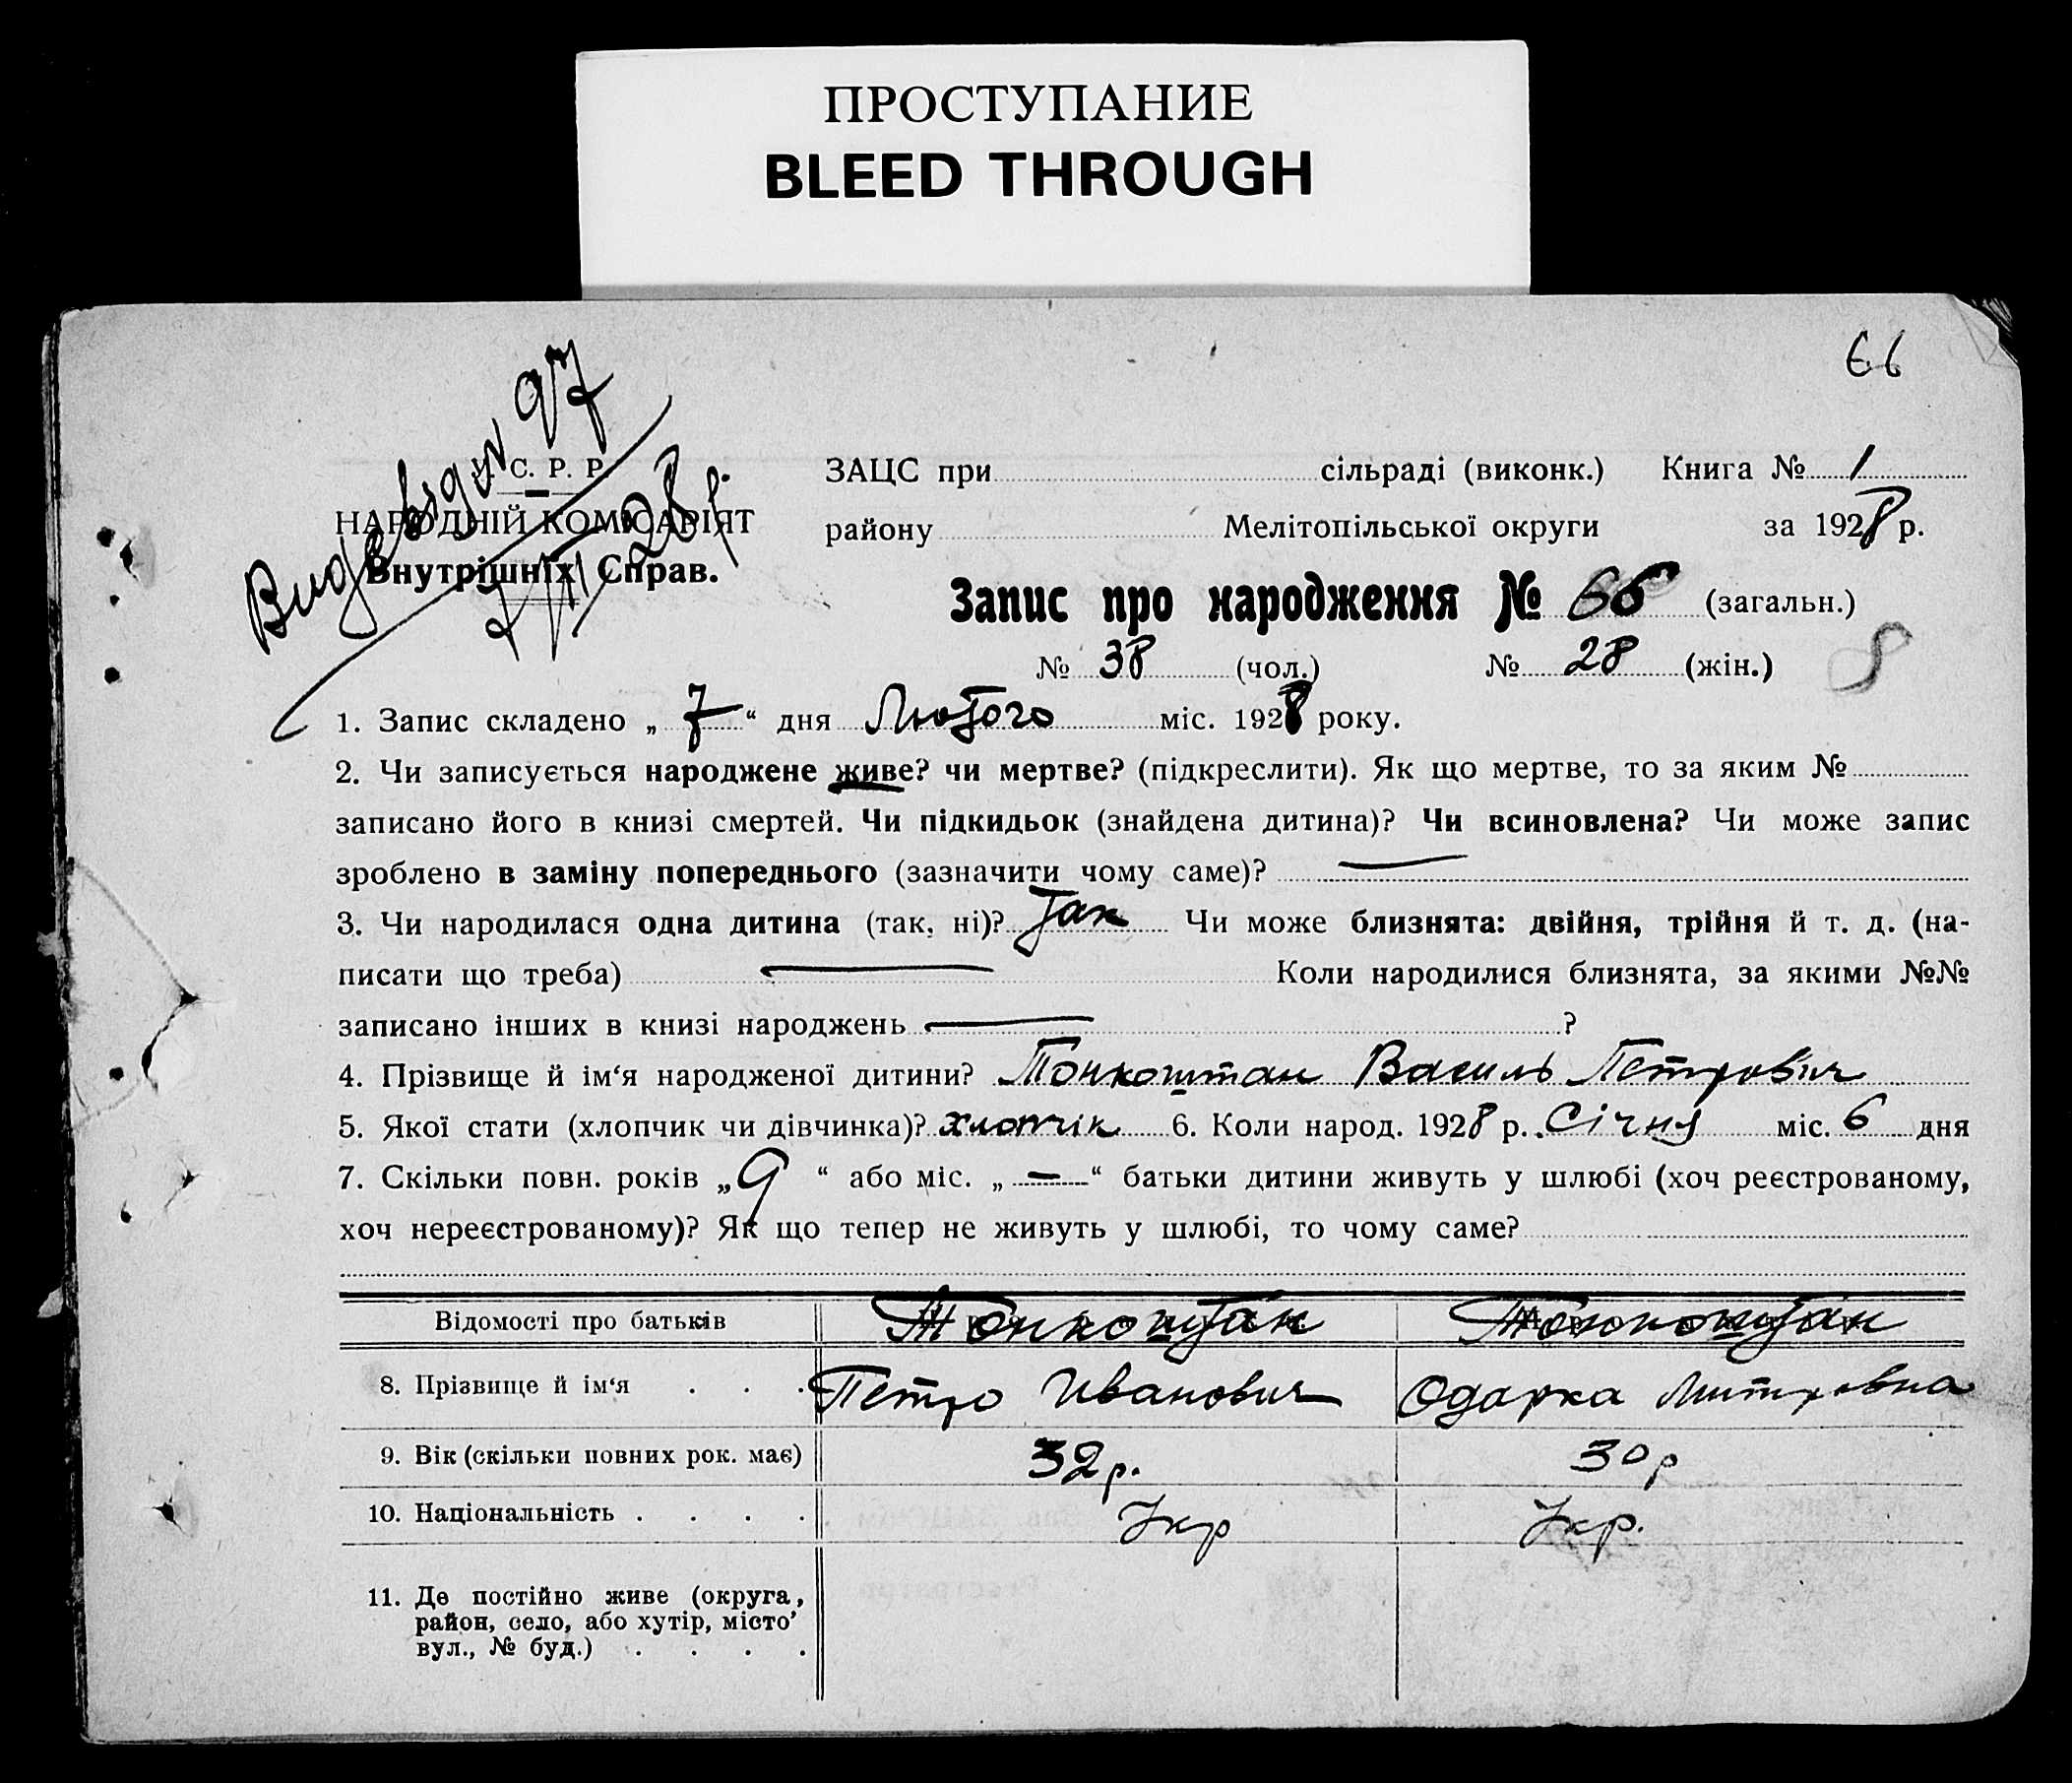 ПРОСТУПАНИЕ
BLEED THROUGH
66
У. С. Р. Р.
НАРОДНІЙ КОМІСАРІЯТ
Внутрішніх Справ.
ЗАЦС при сільраді (виконк.) Книга № 1
району Мелітопільської округи за 1928 р.
Запис про народження № 66 (загальн.)
№ 38 (чол.) № 28 (жін.)
8
1. Запис складено „ 7 “ дня Лютого міс. 1928 року.
2. Чи записується народжене живе? чи мертве? (підкреслити). Як що мертве, то за яким №
записано його в книзі смертей. Чи підкидьок (знайдена дитина)? Чи всиновлена? Чи може запис
зроблено в заміну попереднього (зазначити чому саме)? —
3. Чи народилася одна дитина (так, ні)? Так Чи може близнята: двійня, трійня й т. д. (на-
писати що треба) — Коли народилися близнята, за якими №№
записано інших в книзі народжень — ?
4. Прізвище й ім‘я народженої дитини? Тонкоштан Василь Петрович
5. Якої стати (хлопчик чи дівчинка)? хлопчік 6. Коли народ. 1928 р. Січня міс. 6 дня
7. Скільки повн. років „ 9 “ або міс. „ — “ батьки дитини живуть у шлюбі (хоч реєстрованому,
хоч нереєстрованому)? Як що тепер не живуть у шлюбі, то чому саме?
Відомості про батьків Тонкоштан Тонкоштан
8. Прізвище й ім‘я . . . Петро Иванович Одарка Митровна
9. Вік (скільки повних рок. має) 32 р. 30 р
10. Національність . . . . Укр Укр.
11. Де постійно живе (округа,
район, село, або хутір, місто’
вул., № буд.) . . . .